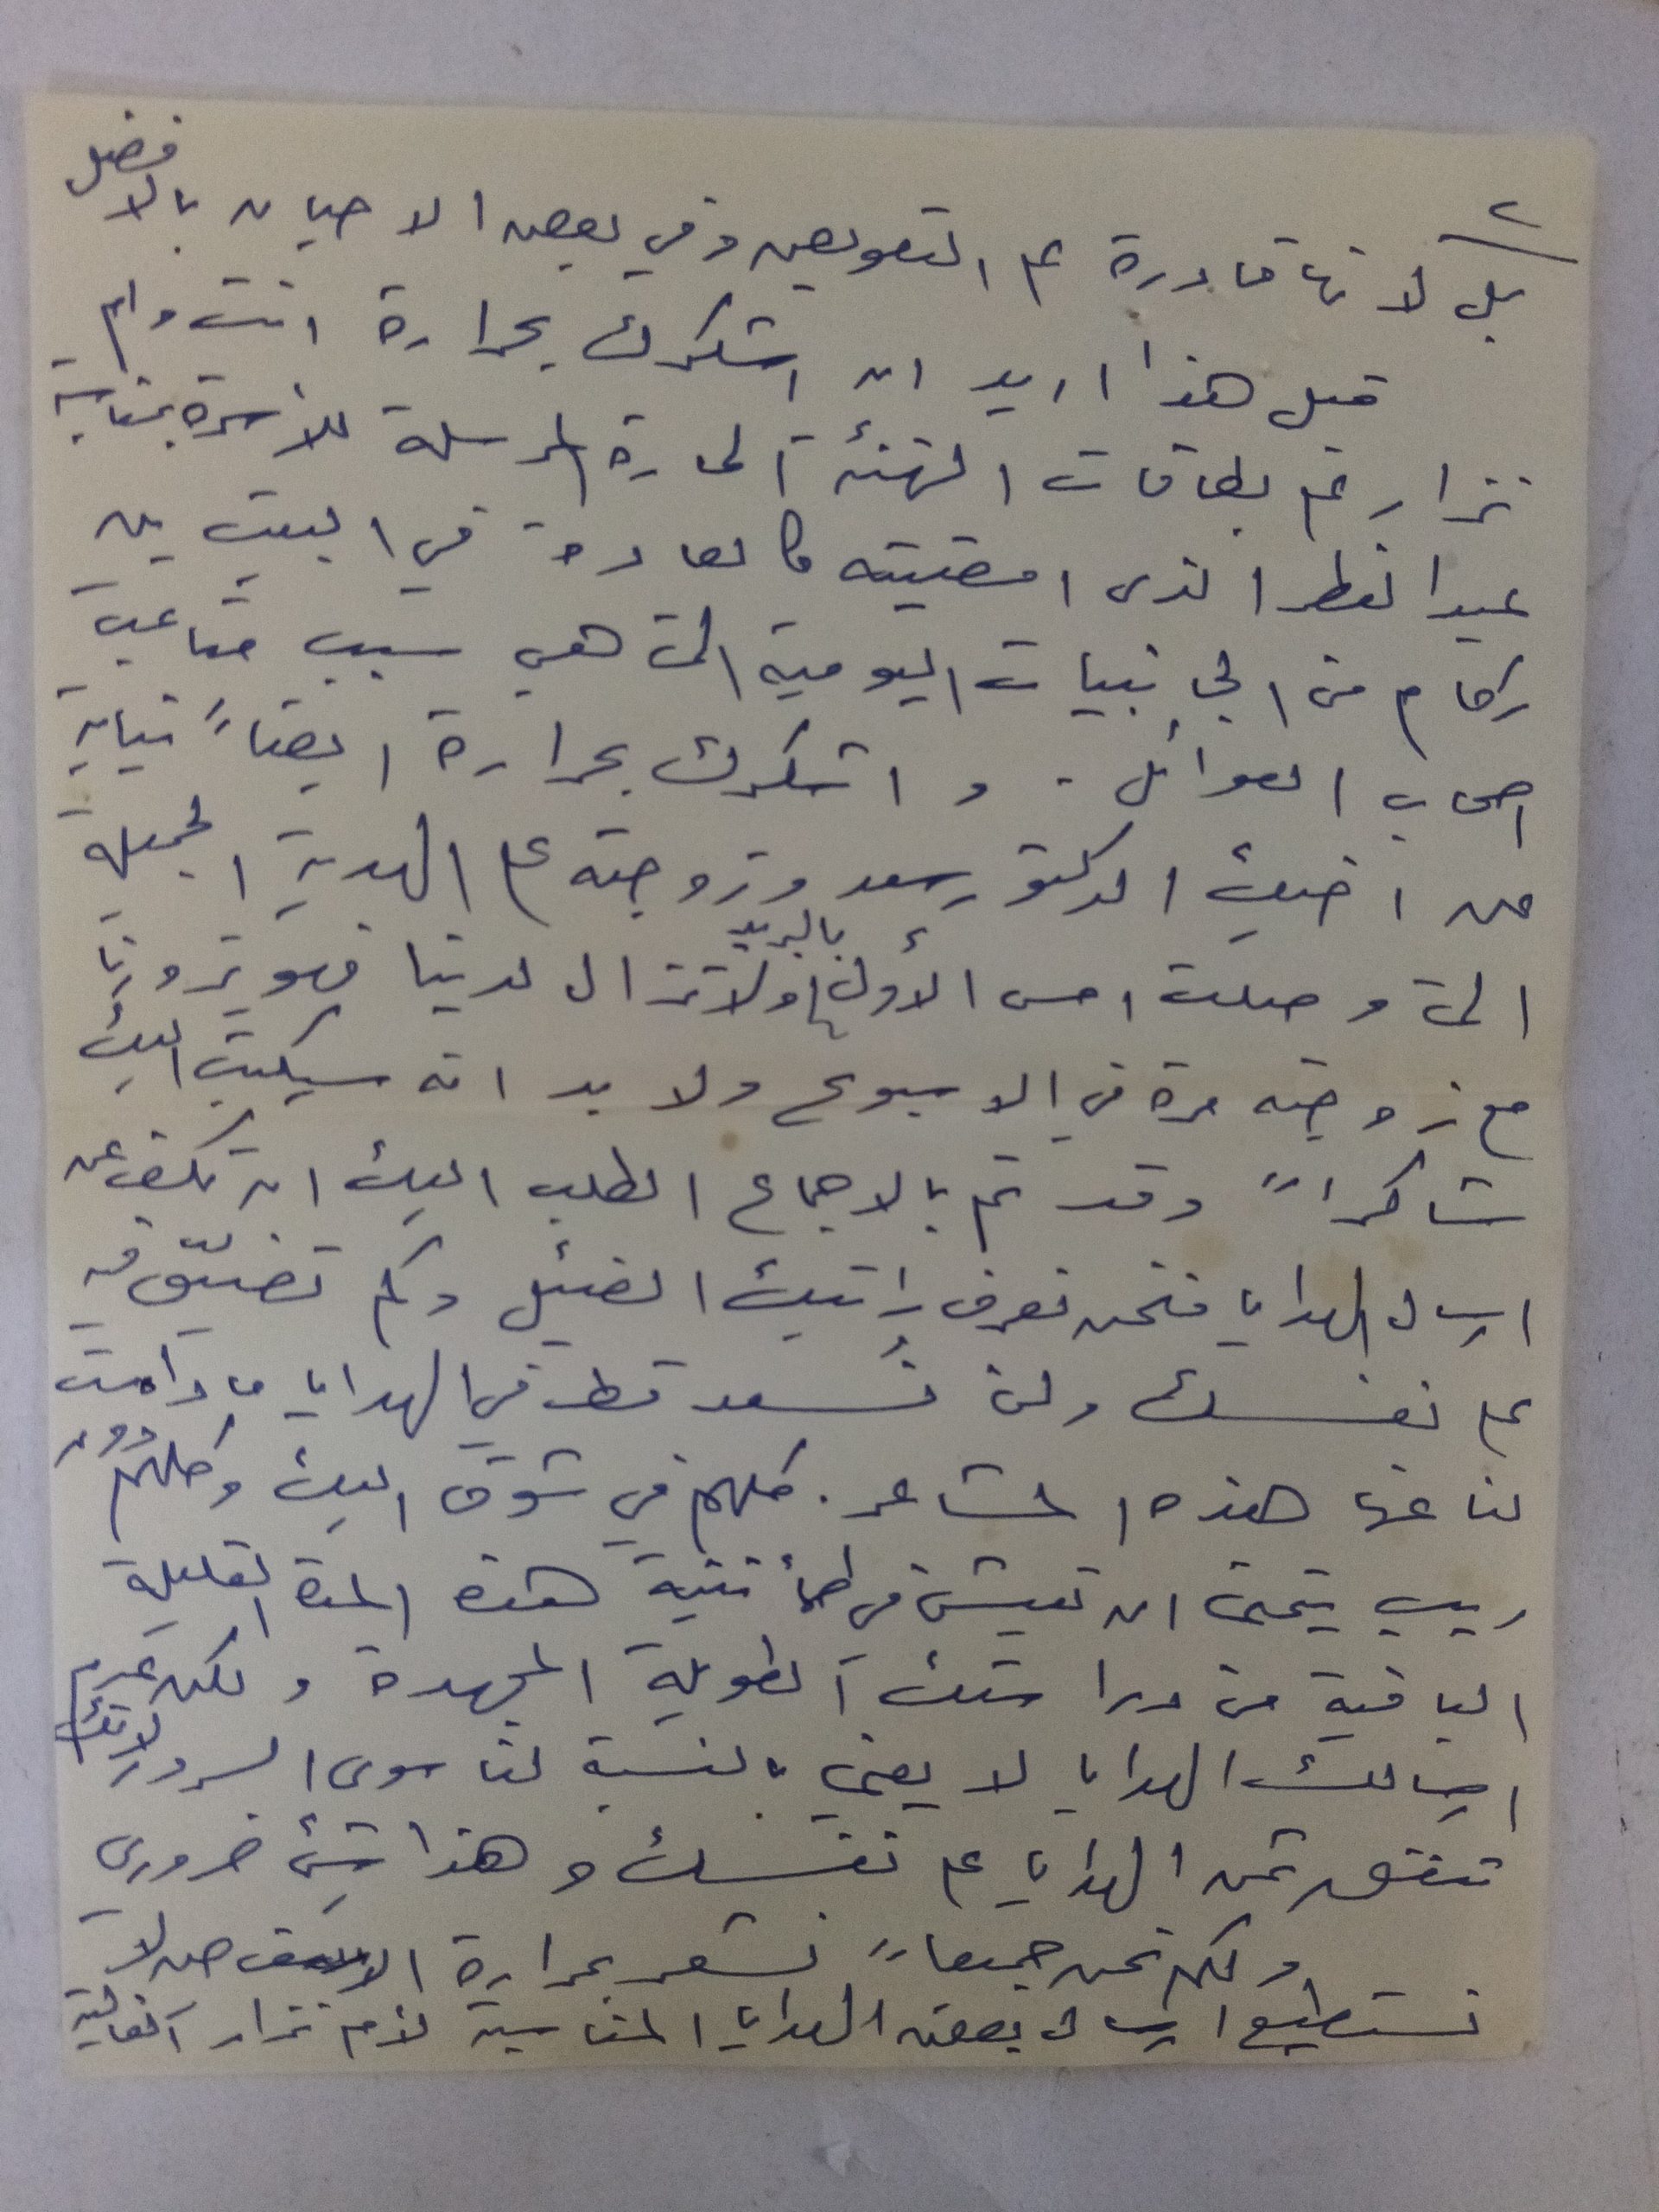 ٢
بل لانها قادرة على التعويض وفي بعض الاحيان بالافضل
قبل هذا اريد ان اشكرك بحرارة انت وام
نزار على بطاقات التهنئة الحارة المرسلة للأسرة بمناسبة
عيد الفطر الذي امضيته كالعادة في البيت بين
ركام من الجانبيات اليومية التي هي سبب متاعب
اصحاب العوائل . و اشكرك بحرارة ايضاً نيابة
عن اخيك الدكتور سعد وزوجته على الهدية الجميلة
التي وصلت امس الأول بالبريد ولاتزال لدينا فهو يزورنا
مع زوجته مرة في الاسبوع ولا بد انه سيكتب اليك
شاكراً وقد تم بالاجماع الطلب اليك ان تكف عن
ارسال الهدايا فنحن نعرف راتبك الضئيل وكم تضيّق فيه
على نفسك ولن نُسعد قط في الهدايا مادامت
لنا عنها هذه المشاعر . كلهم في شوق اليك وكلهم دون
ريب يتمنى ان تعيش في طمأنينة هذه المدة القليلة
الباقية من دراستك الطويلة المجهدة ولكن عدم
ارسالك الهدايا لا يعني بالنسبة لنا سوى السرور لانك
تنفق ثمن الهدايا على نفسك وهذا شيئ ضروري
ولكن نحن جميعاً نشعر بمرارة الاسف حين لا
نستطيع ارسال بعض الهدايا المناسبة لأم نزار الغالية